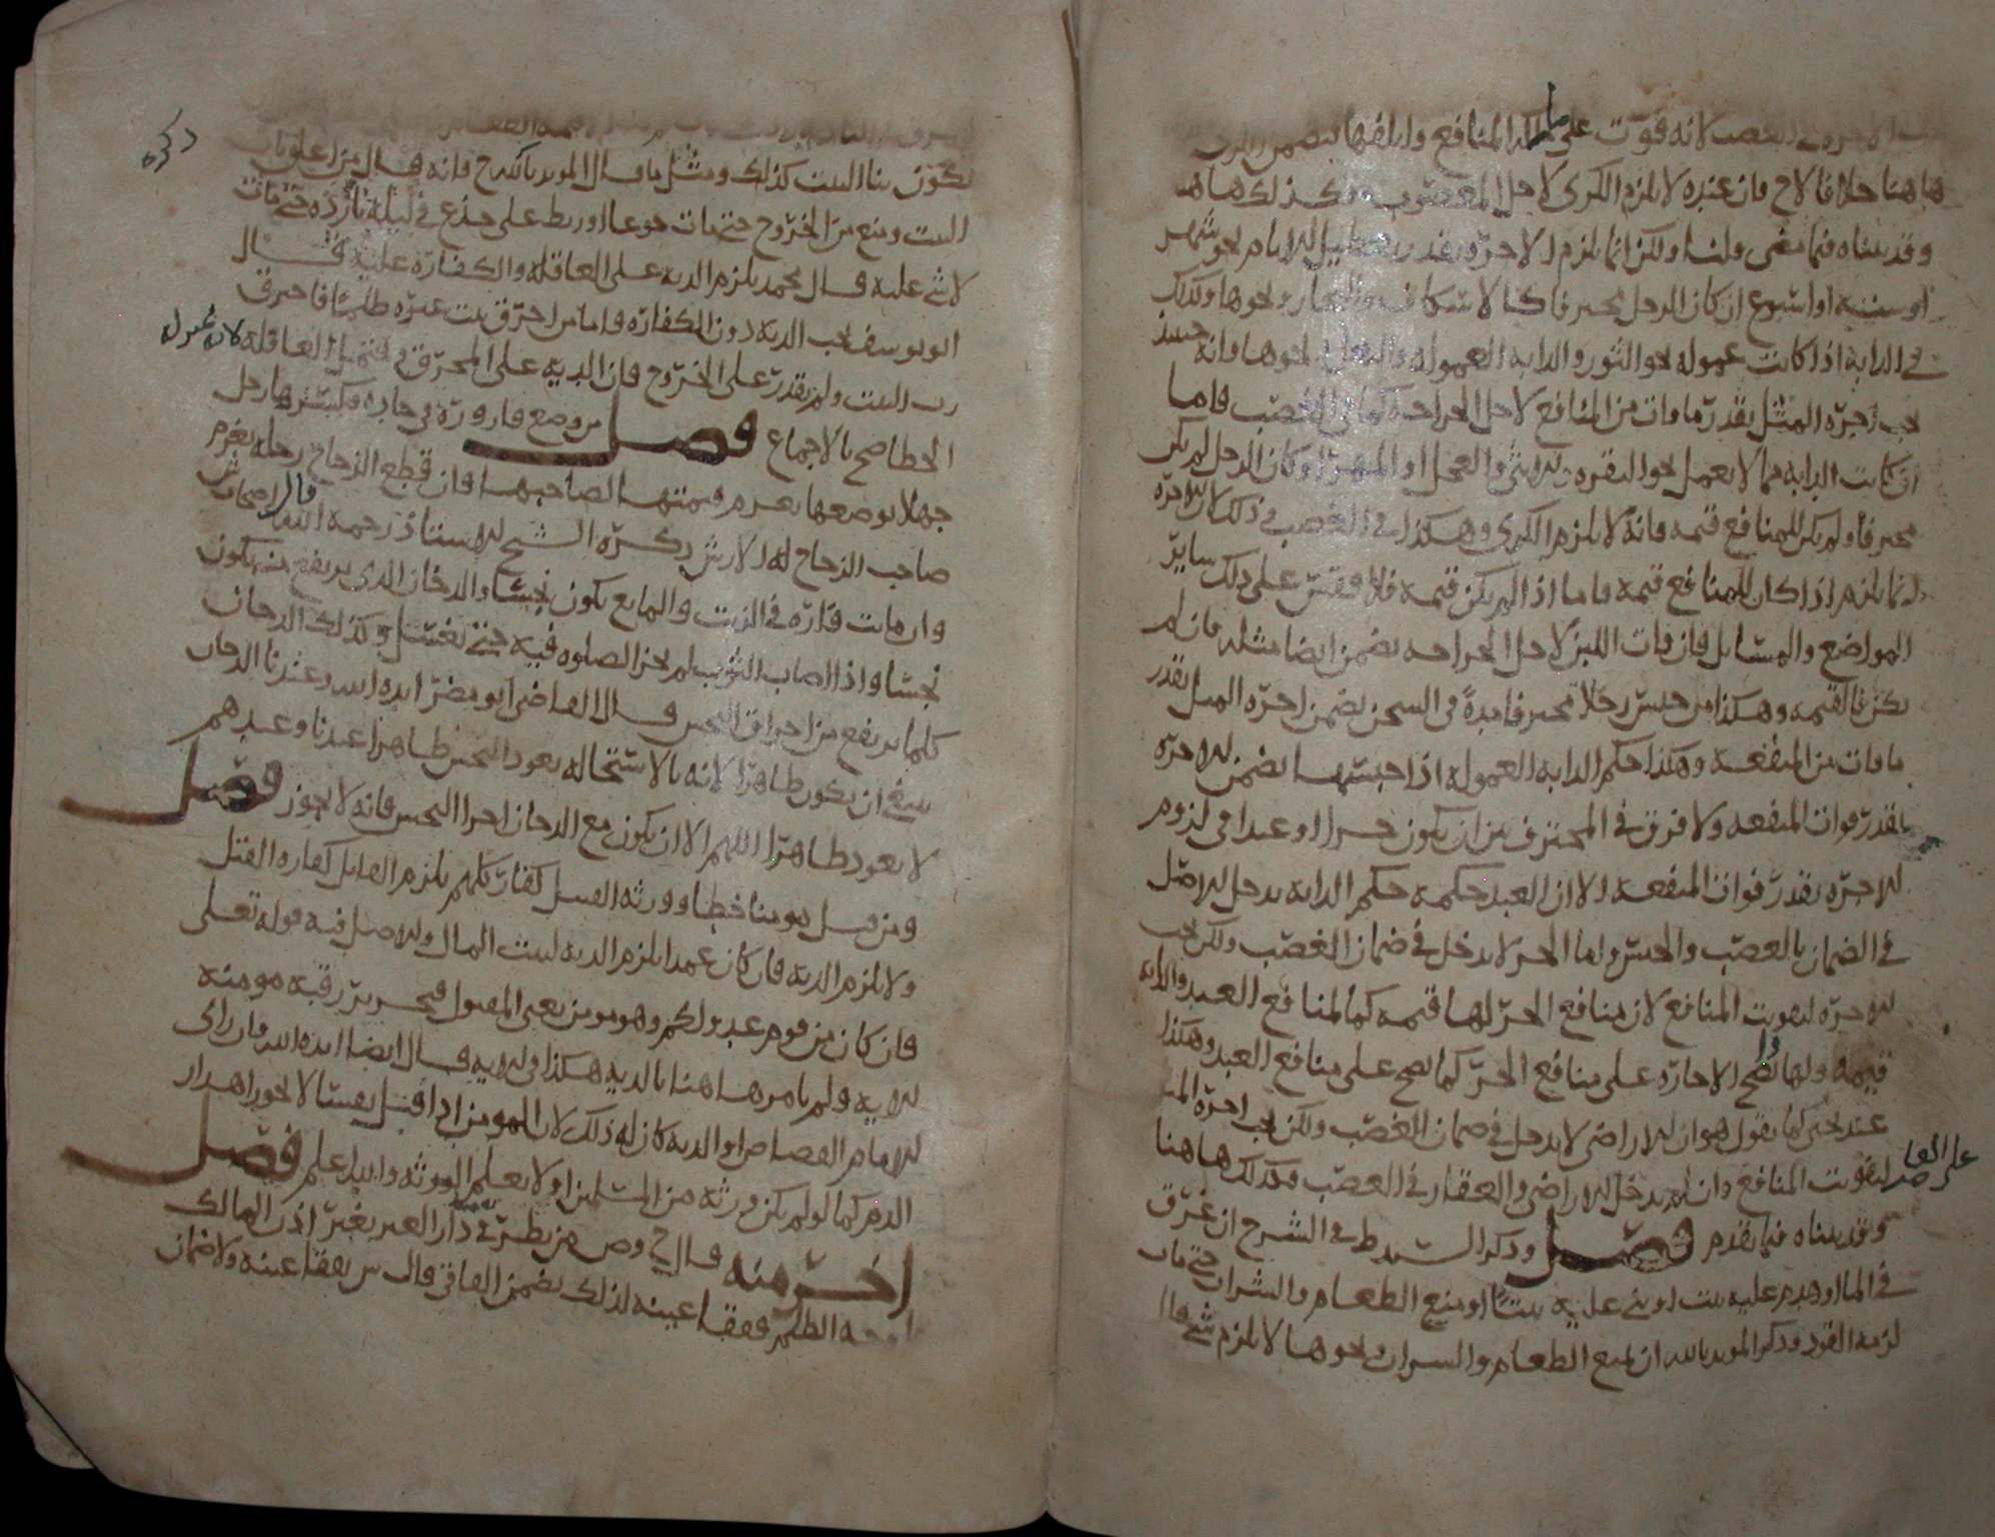 الاجرة في الغصب لانه فوّت على مالك المنافع واتلفها فيضمن
هاهنا خلافا لاح فان عنده لا يلزم الكرى لاجل المغصوب وكذلك هاهنا
وقد بيناه فيما مضى ولنا ولكن انما يلزم الاجرة بقدر تعطيل الايام نحو شهر
او سنة او اسبوع ان كان الرجل محترفا كالاسكاف والنجار ونحوها وكذلك
في الدابة اذا كانت عمولة نحو الثور والدابة العمولة والبغل ونحوها وانه حينئذ
يجب اجرة المثل بقدر ما فات من المنافع لاجل الجراحة كما في الغصب فاما
ان كانت الدابة مما لا يعمل نحو البقرة الانثى والعجل او المهر او كان الرجل لم يكن
محترفا ولم يكن للمنافع قيمة فانه لا يلزم الكرى وهكذا في الغصب في ذلك لان الاجرة
انما يلزم اذا كان للمنافع قيمة فاما اذا لم يكن قيمة فلا فقس على ذلك سائر
المواضع والمسائل فان فات اللبن لاجل الجراحة يضمن ايضا مثله فان لم
يكن فالقيمة وهكذا من حبس رجلا محترفا مدة في السجن يضمن اجرة المثل بقدر
ما فات من المنفعة وهكذا حكم الدابة العمولة اذا حبسها يضمن الاجرة
بقدر فوات المنفعة ولا فرق في المحترف بين ان يكون حرا او عبدا في لزوم
الاجرة بقدر فوات المنفعة الا ان العبد حكمه حكم الدابة يدخل الاصل
في الضمان بالغصب والحبس واما الحر لا يدخل في ضمان الغصب ولكن يجب
الاجرة لتفويت المنافع لان منافع الحر لها قيمة كما لمنافع العبد والدابة
قيمة ولهذا تصح الاجارة على منافع الحر كما تصح على منافع العبد وهكذا
عند يحيى كما يقول هو ان الاراضي لا يدخل في ضمان الغصب ولكن يجب اجرة المثل
على الغاصب لتفويت المنافع وان لم يدخل الاراضي والعقار في الغصب فكذلك هاهنا
وقد بيناه فيما تقدم فصل وذكر السيد ط في الشرح ان من غرق
في الماء او هدم عليه بيت او بنى عليه بيتا او منع الطعام والشراب حتى مات
لزمه القود وذكر المويد بالله ان بمنع الطعام والشراب ونحوها لا يلزم شي قال
يكون بنا البيت كذلك ومثل ما قال المويد بالله قال ح فانه قال من اغلق باب
البيت ومنع من الخروج حتى مات جوعا او ربط على جذع في ليلة باردة حتى مات
لا شي عليه قال محمد يلزم الدية على العاقلة والكفارة عليه قال
ابو يوسف يجب الدية دون الكفارة فاما من احرق بيت غيره ظلما فاحترق
رب البيت ولم يقدر على الخروج فان الدية على المحرق ولا يحتمل العاقلة لانه بمنزلة
الخطا صح بالاجماع فصل من وضع قارورة في جادة فكسرها رجل
جهلا بوضعها يغرم قيمتها لصاحبها فان قطع الزجاج رجله يغرم
صاحب الزجاج له الارش ذكره الشيخ الاستاذ رحمه الله قال اصحاب ش
وان ماتت فارة في الزيت والمايع يكون نجسا والدخان الذي يرتفع منه يكون
نجسا واذا اصاب الثوب لم تجز الصلوة فيه حتى يغسل وكذلك الدخان
كلما يرتفع من احراق النجس قال القاضي ابو مضر ايده الله وعندنا الدخان
ينبغي ان يكون طاهرا لانه بالاستحالة يعود النجس طاهرا عندنا وعندهم
لا يعود طاهرا اللهم الا ان يكون مع الدخان اجزا النجس فانه لا يجوز فصل
ومن قتل مومنا خطا وورثة القتيل كفار كلهم يلزم القاتل كفارة القتل
ولا يلزم الدية فان كان عمدا يلزم الدية لبيت المال والاصل فيه قوله تعالى
فان كان من قوم عدو لكم وهو مومن يعني المقتول فتحرير رقبة مومنة
الاية ولم يامر هاهنا بالدية هكذا في الاية قال ايضا ايده الله فان راى
الامام القصاص او الدية كان له ذلك لان المومن اذا قتل نفسا لا يجوز اهدار
الدم كما لو لم يكن ورثة من المسلمين او لا يعلم الورثة والله اعلم فصل
اخر منه قال ح وص من نظر في دار الغير بغير اذن المالك
الظلم ففقا عينه لذلك يضمن الفاقي قال ش يفقا عينه ولا ضمان